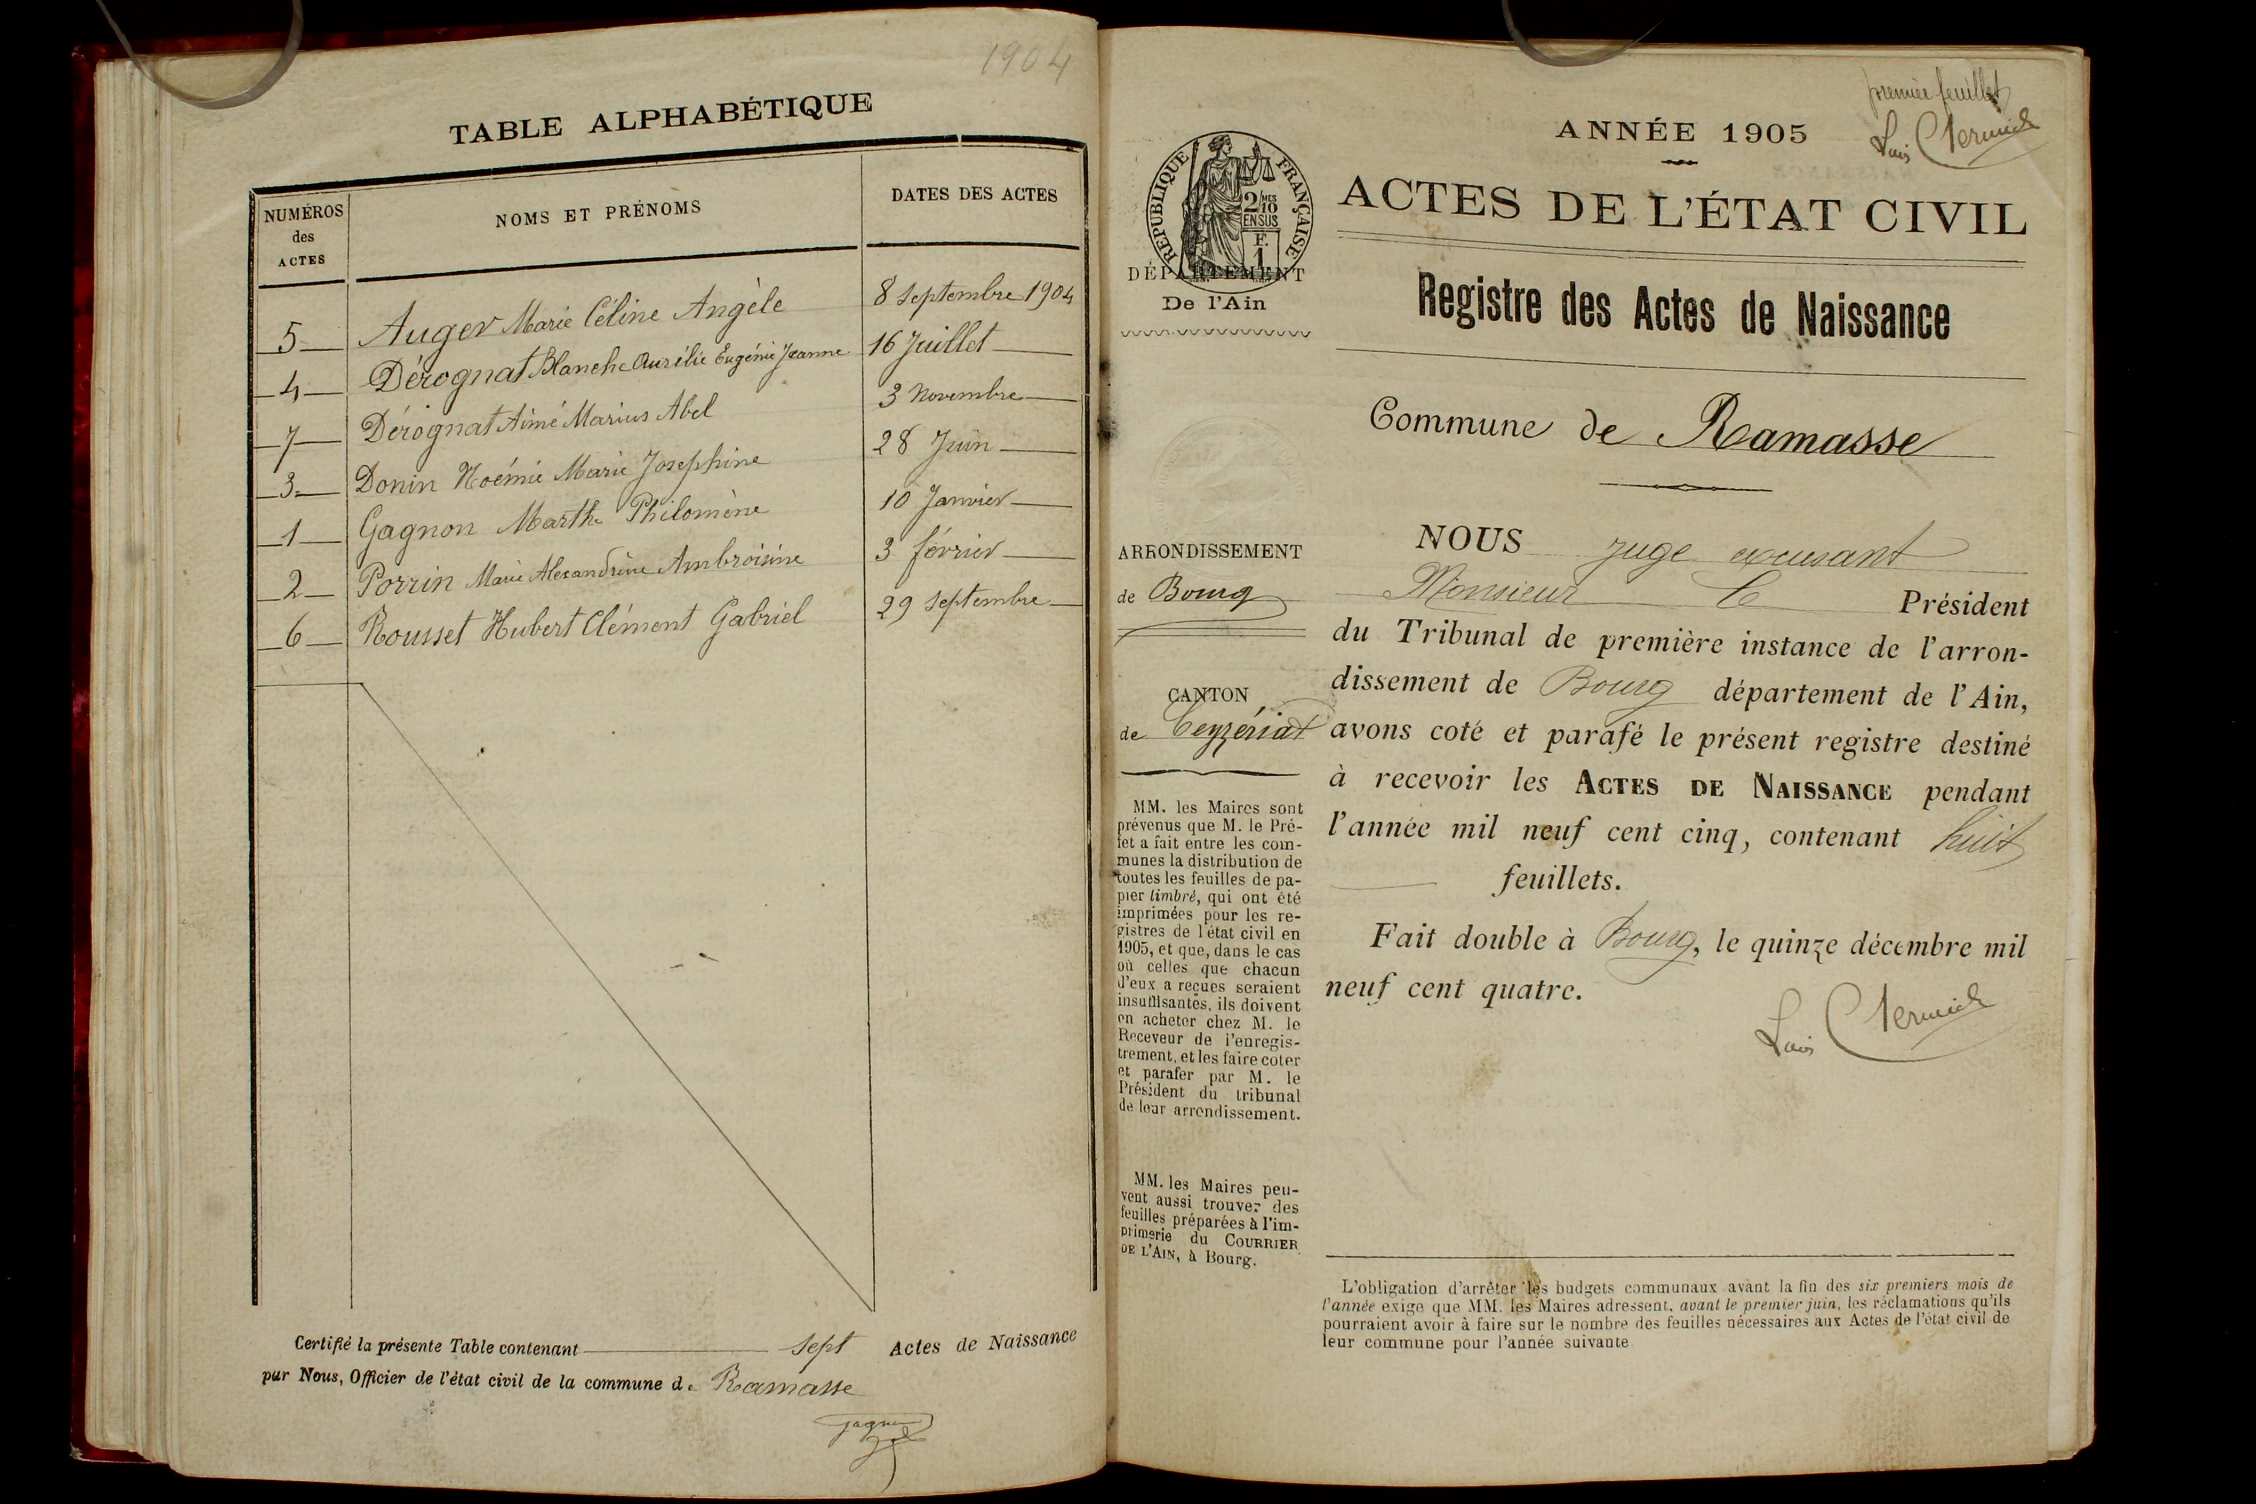 1904
TABLE ALPHABÉTIQUE
NUMÉROS
des
ACTES
NOMS ET PRÉNOMS
DATES DES ACTES
5 Auger Marie Céline Angèle 8 septembre 1904
4 Dérognat Blanche Aurélie Eugénie Jeanne 16 Juillet
7 Dérognat Aimé Marius Abel 3 Novembre
3 Donin Noémie Marie Josephine 28 Juin
1 Gagnon Marthe Philomène 10 Janvier
2 Porrin Marie Alexandrine Ambroisine 3 février
6 Rousset Hubert Clément Gabriel 29 septembre
Certifié la présente Table contenant sept Actes de Naissance
par Nous, Officier de l'état civil de la commune de Ramasse
premier feuillet
ANNÉE 1905
ACTES DE L'ÉTAT CIVIL
RÉPUBLIQUE FRANÇAISE
2/10 MES
EN SUS
F.
1
DÉPARTEMENT
De l'Ain
Registre des Actes de Naissance
Commune de Ramasse
ARRONDISSEMENT
de Bourg
CANTON
de Ceyzériat
MM. les Maires sont
prévenus que M. le Pré-
fet a fait entre les com-
munes la distribution de
toutes les feuilles de pa-
pier timbré, qui ont été
imprimées pour les re-
gistres de l'état civil en
1905, et que, dans le cas
où celles que chacun
d'eux a reçues seraient
insuffisantes, ils doivent
en acheter chez M. le
Receveur de l'enregis-
trement, et les faire coter
et parafer par M. le
Président du tribunal
de leur arrondissement.
MM. les Maires peu-
vent aussi trouver des
feuilles préparées à l'im-
primerie du COURRIER
DE L'AIN, à Bourg.
NOUS juge excusant
Monsieur le Président
du Tribunal de première instance de l'arron-
dissement de Bourg département de l'Ain,
avons coté et parafé le présent registre destiné
à recevoir les ACTES DE NAISSANCE pendant
l'année mil neuf cent cinq, contenant huit
feuillets.
Fait double à Bourg, le quinze décembre mil
neuf cent quatre.
L'obligation d'arrêter les budgets communaux avant la fin des six premiers mois de
l'année exige que MM. les Maires adressent, avant le premier juin, les réclamations qu'ils
pourraient avoir à faire sur le nombre des feuilles nécessaires aux Actes de l'état civil de
leur commune pour l'année suivante